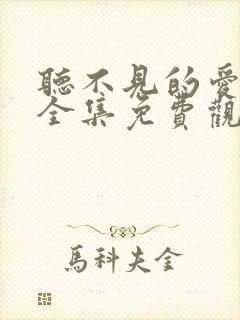 聽不見的愛
全集免費觀
馬科夫金